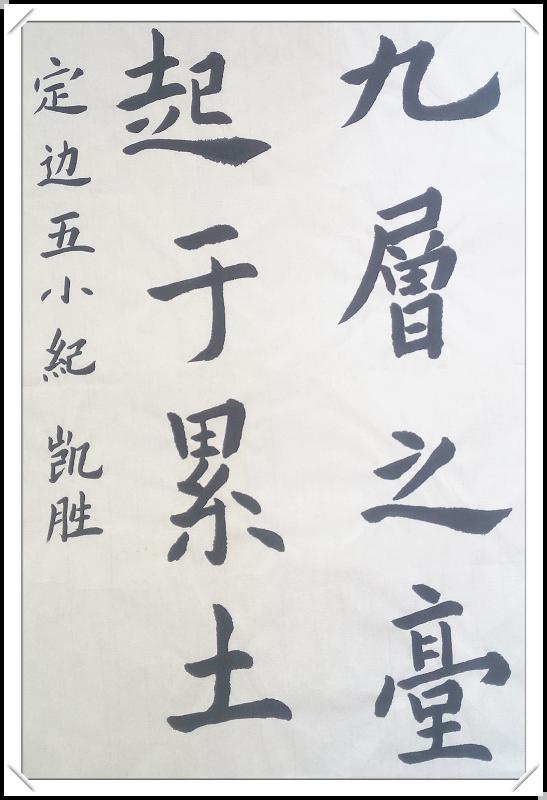 九層之臺
起于累土
定边五小紀凱胜